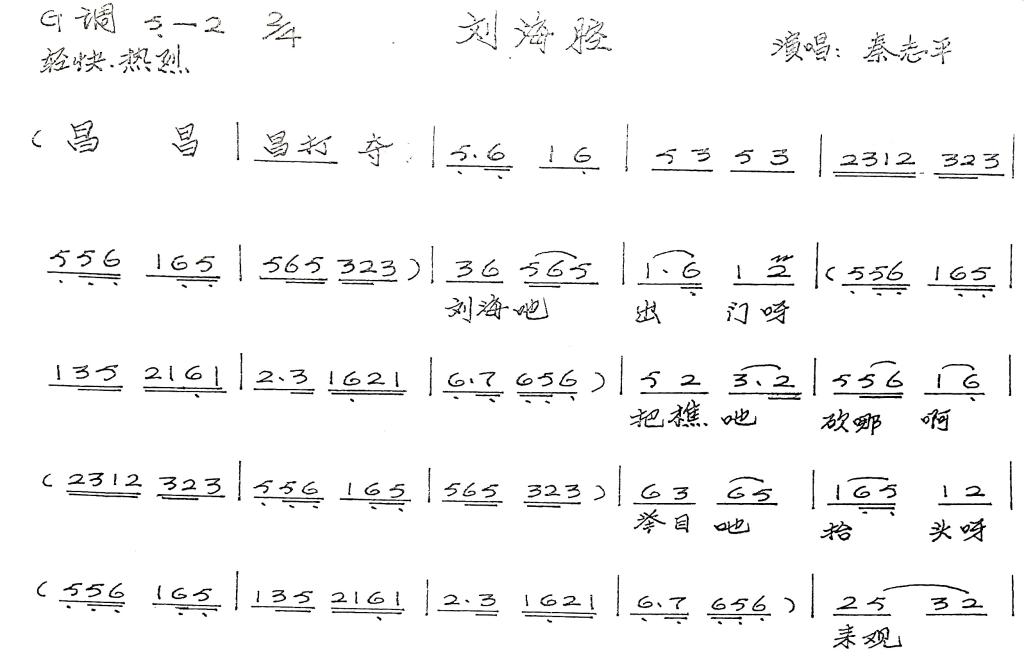 G调 5—2 2/4 刘海腔
轻快.热烈 演唱：秦志平
( 昌 昌 | 昌打 夺 | 5.6 16 | 53 53 | 2312 323 |
556 165 | 565 323 ) | 36 565 | 1.6 12 | ( 556 165 |
刘海吔 出 门呀
135 2161 | 2.3 1621 | 6.7 656 ) | 52 3.2 | 556 16 |
把樵吔 砍哪 啊
( 2312 323 | 556 165 | 565 323 ) | 63 65 | 165 12 |
举目吔 抬 头呀
( 556 165 | 135 2161 | 2.3 1621 | 6.7 656 ) | 25 32 |
来观